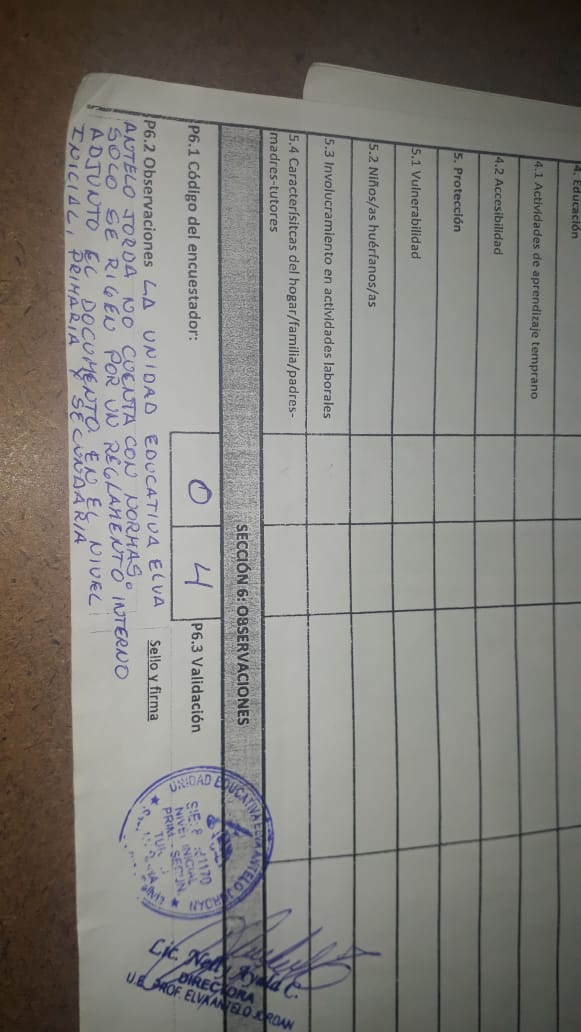 4. Educación
4.1 Actividades de aprendizaje temprano
4.2 Accesibilidad
5. Protección
5.1 Vulnerabilidad
5.2 Niños/as huérfanos/as
5.3 Involucramiento en actividades laborales
5.4 Caracterísitcas del hogar/familia/padres-
madres-tutores
SECCIÓN 6: OBSERVACIONES
P6.1 Código del encuestador: 0 4 P6.3 Validación
P6.2 Observaciones LA UNIDAD EDUCATIVA ELVA
ANTELO JORDA NO CUENTA CON NORMAS.
SOLO SE RIGEN POR UN REGLAMENTO INTERNO
ADJUNTO EL DOCUMENTO EN EL NIVEL
INICIAL, PRIMARIA Y SECUNDARIA
Sello y firma
UNIDAD EDUCATIVA ELVA ANTELO JORDAN
SIE:
NIVEL INICIAL
PRIM. - SECUN.
Lic. Ayala C.
DIRECTORA
U.E. PROF. ELVA ANTELO JORDAN